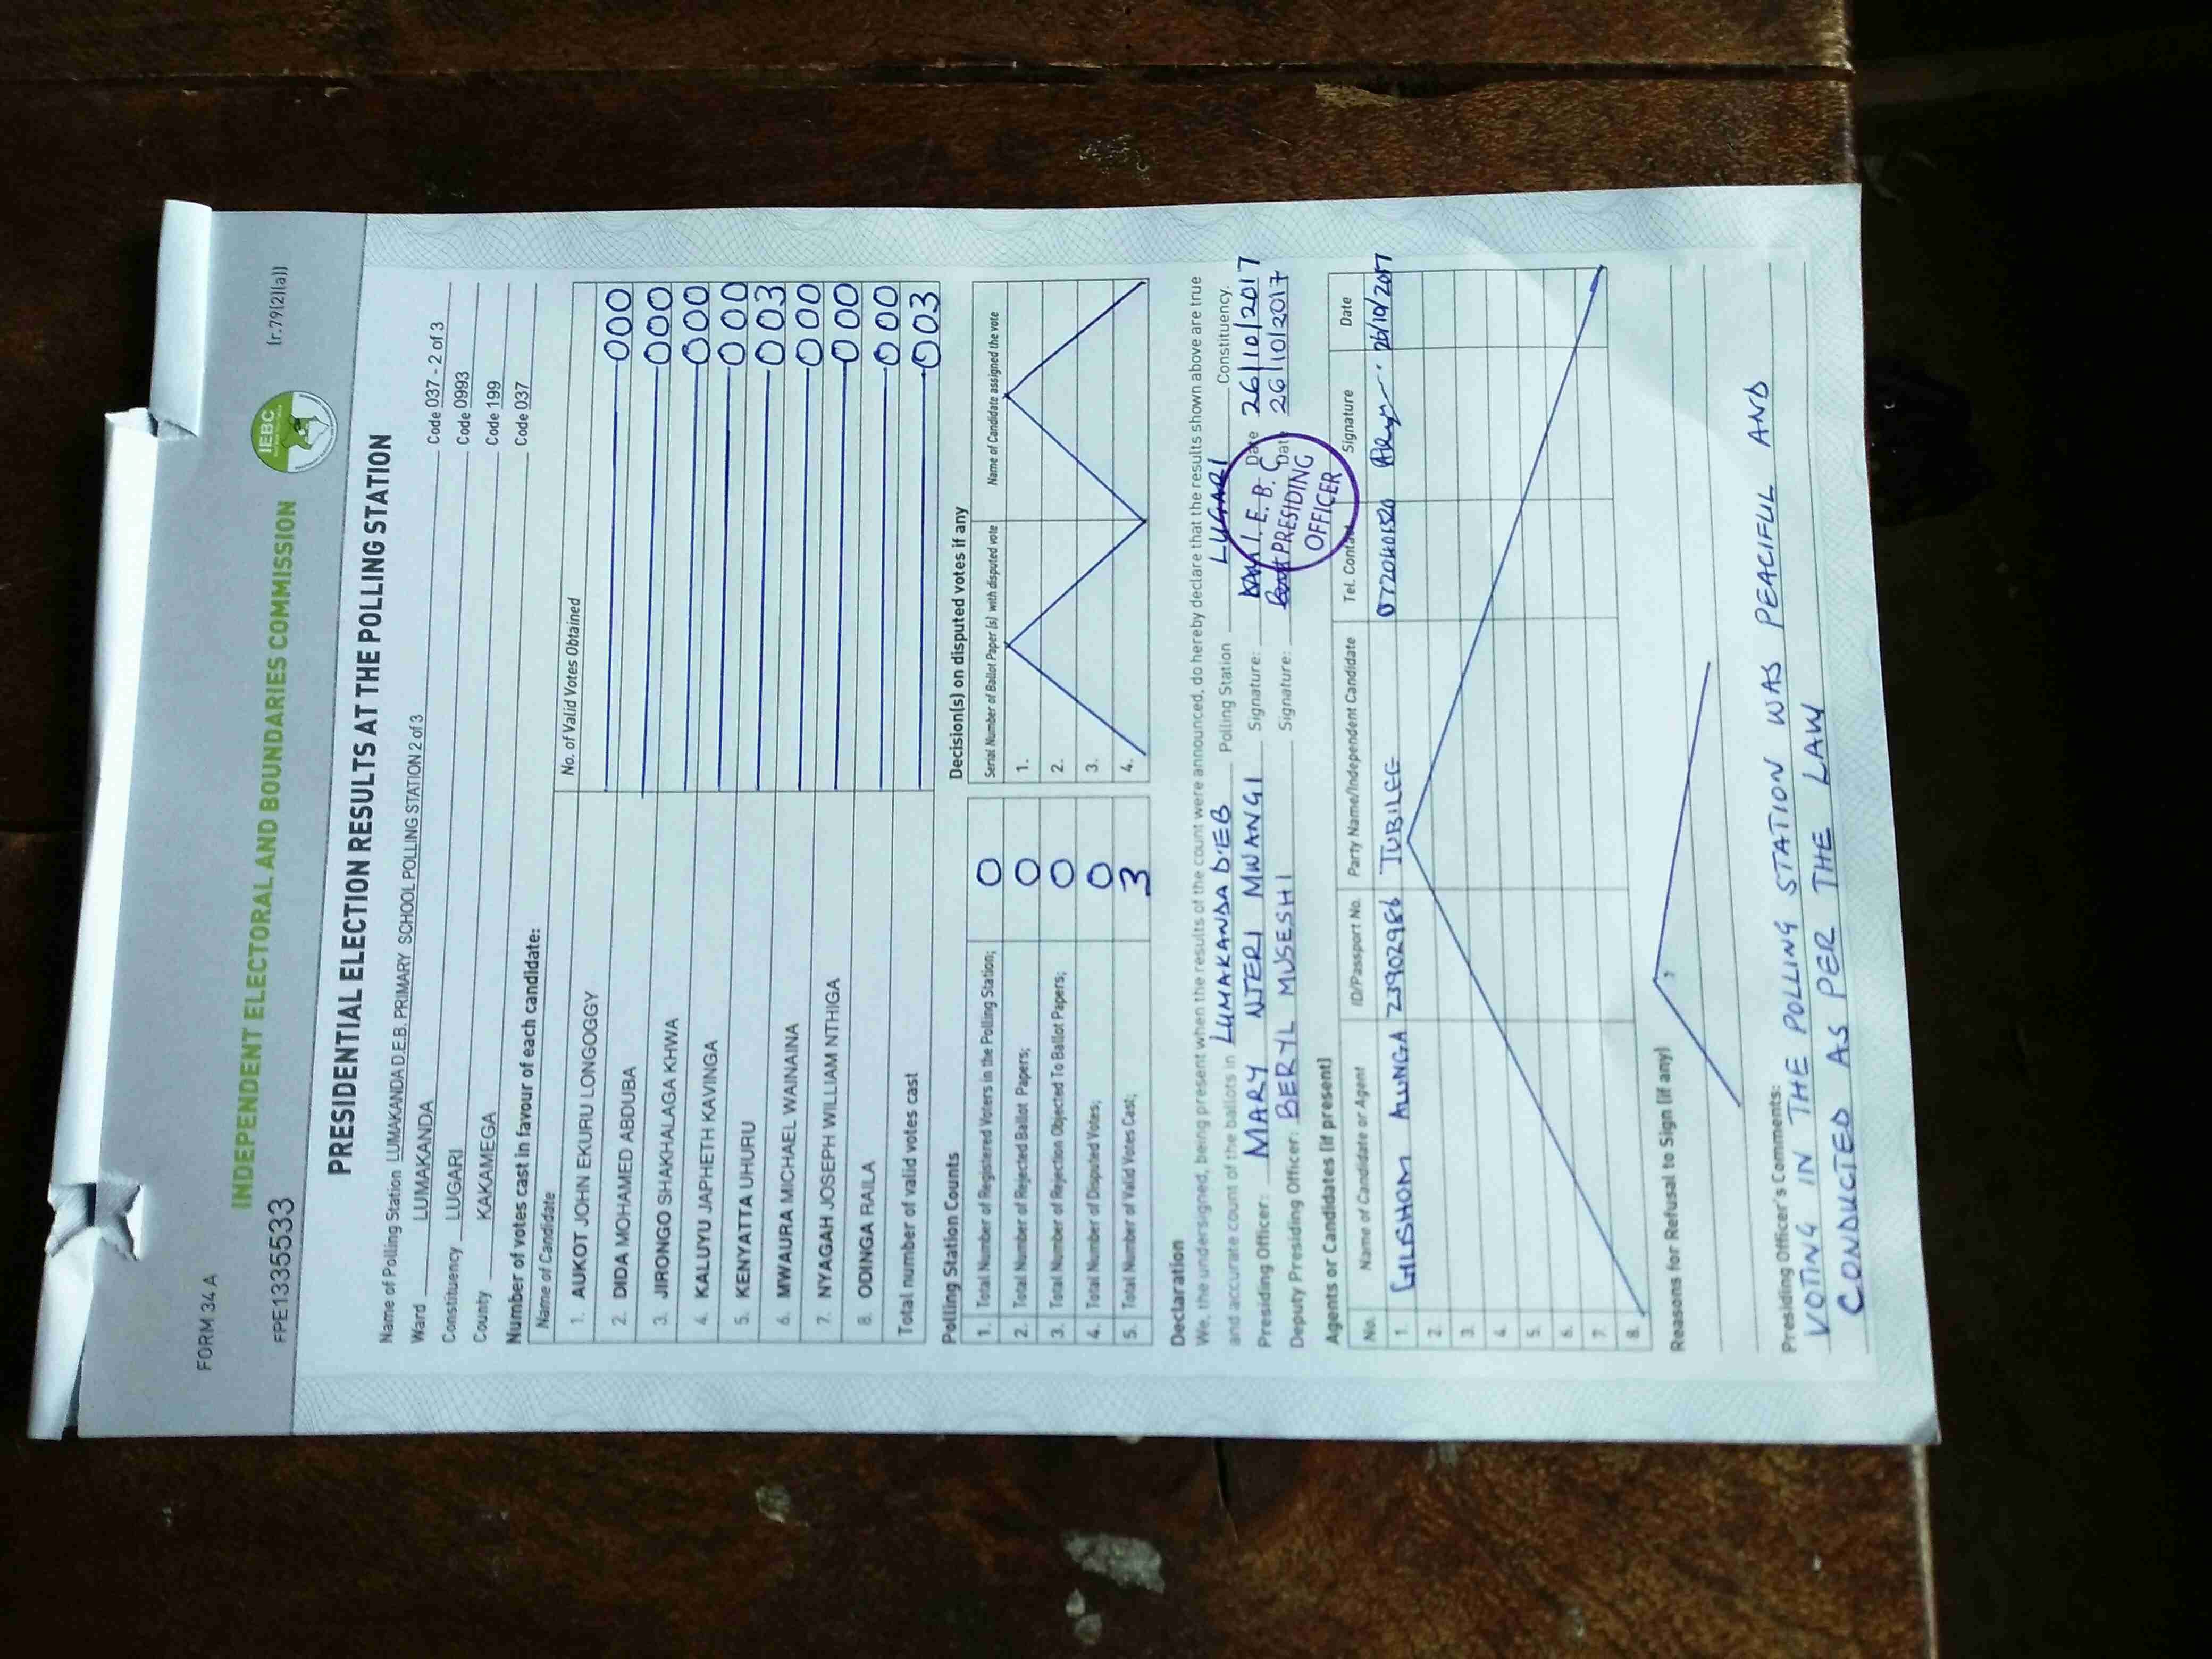 FORM 34 A
INDEPENDENT ELECTORAL AND BOUNDARIES COMMISSION
IEBC
(r.79(2)(a))
FPE1335533
PRESIDENTIAL ELECTION RESULTS AT THE POLLING STATION
Name of Polling Station LUMAKANDA D.E.B. PRIMARY SCHOOL POLLING STATION 2 of 3 Code 037 - 2 of 3
Ward LUMAKANDA Code 0993
Constituency LUGARI Code 199
County KAKAMEGA Code 037
Number of votes cast in favour of each candidate:
Name of Candidate No. of Valid Votes Obtained
1. AUKOT JOHN EKURU LONGOGGY 000
2. DIDA MOHAMED ABDUBA 000
3. JIRONGO SHAKHALAGA KHWA 000
4. KALUYU JAPHETH KAVINGA 000
5. KENYATTA UHURU 003
6. MWAURA MICHAEL WAINAINA 000
7. NYAGAH JOSEPH WILLIAM NTHIGA 000
8. ODINGA RAILA 000
Total number of valid votes cast 003
Polling Station Counts
1. Total Number of Registered Voters in the Polling Station; 0
2. Total Number of Rejected Ballot Papers; 0
3. Total Number of Rejection Objected To Ballot Papers; 0
4. Total Number of Disputed Votes; 0
5. Total Number of Valid Votes Cast; 3
Decision(s) on disputed votes if any
Serial Number of Ballot Paper (s) with disputed vote Name of Candidate assigned the vote
1.
2.
3.
4.
Declaration
We, the undersigned, being present when the results of the count were announced, do hereby declare that the results shown above are true
and accurate count of the ballots in LUMAKANDA D'EB Polling Station LUGARI Constituency.
Presiding Officer: MARY NJERI MWANGI Signature: Date 26/10/2017
Deputy Presiding Officer: BERYL MUSESHI Signature: Date 26/10/2017
I. E. B. C
PRESIDING
OFFICER
Agents or Candidates (if present)
No. Name of Candidate or Agent ID/Passport No. Party Name/Independent Candidate Tel. Contact Signature Date
1. ALUNGA 23902986 JUBILEE 0720401520 26/10/2017
2.
3.
4.
5.
6.
7.
8.
Reasons for Refusal to Sign (if any)
Presiding Officer's Comments:
VOTING IN THE POLLING STATION WAS PEACIFUL AND
CONDUCTED AS PER THE LAW